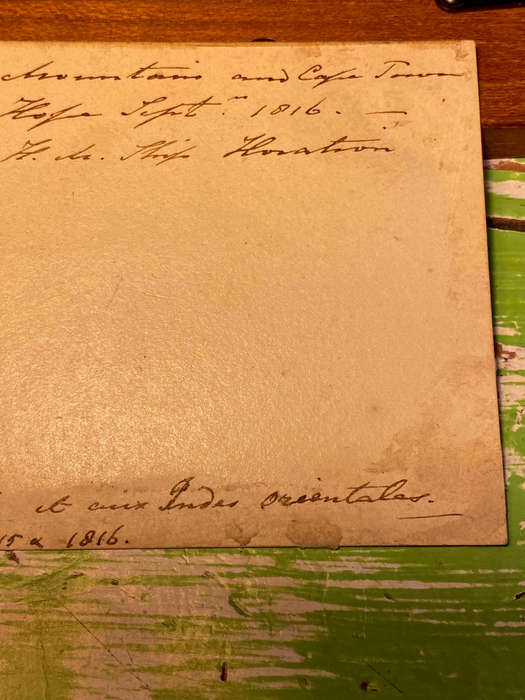 Mountains and Cape Town
Hope Septr 1816. —
H. M. Ship Horatio
et aux Indes Orientales.
15 a 1816.